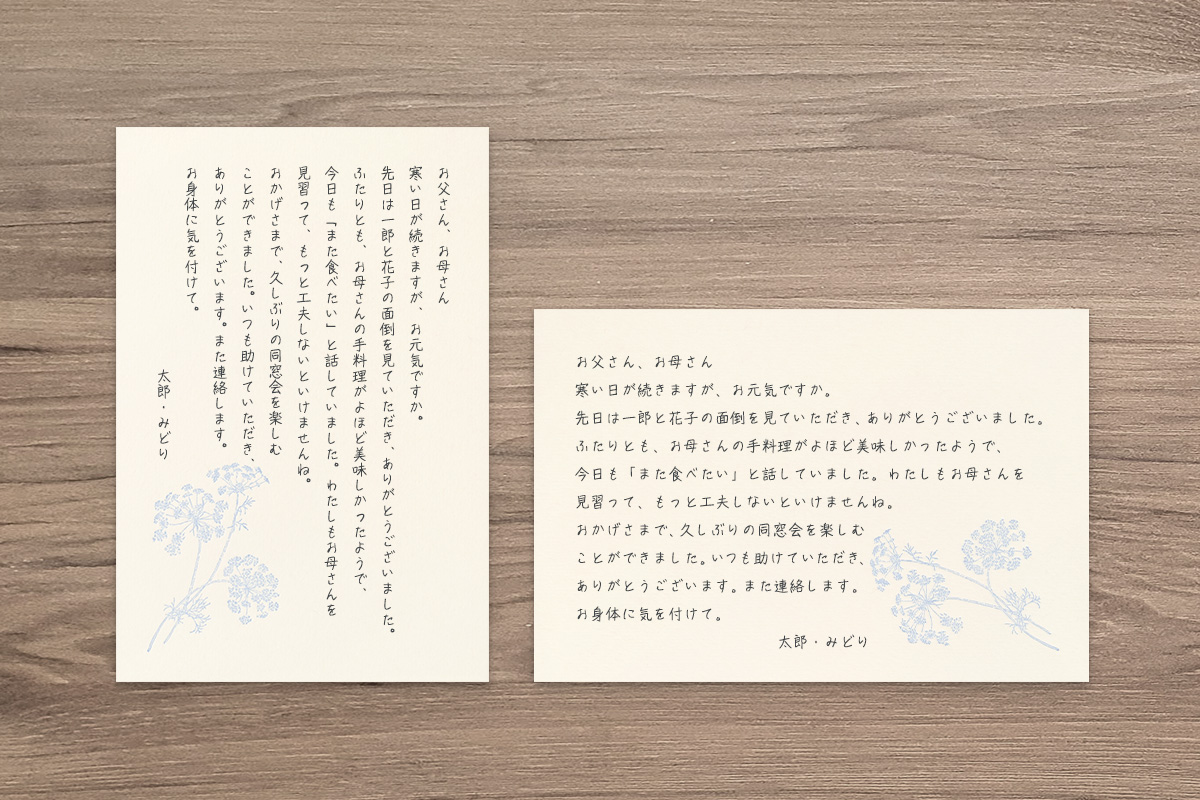 お父さん、お母さん
寒い日が続きますが、お元気ですか。
先日は一郎と花子の面倒を見ていただき、ありがとうございました。
ふたりとも、お母さんの手料理がよほど美味しかったようで、
今日も「また食べたい」と話していました。わたしもお母さんを
見習って、もっと工夫しないといけませんね。
おかげさまで、久しぶりの同窓会を楽しむ
ことができました。いつも助けていただき、
ありがとうございます。また連絡します。
お身体に気を付けて。
太郎・みどり
お父さん、お母さん
寒い日が続きますが、お元気ですか。
先日は一郎と花子の面倒を見ていただき、ありがとうございました。
ふたりとも、お母さんの手料理がよほど美味しかったようで、
今日も「また食べたい」と話していました。わたしもお母さんを
見習って、もっと工夫しないといけませんね。
おかげさまで、久しぶりの同窓会を楽しむ
ことができました。いつも助けていただき、
ありがとうございます。また連絡します。
お身体に気を付けて。
太郎・みどり